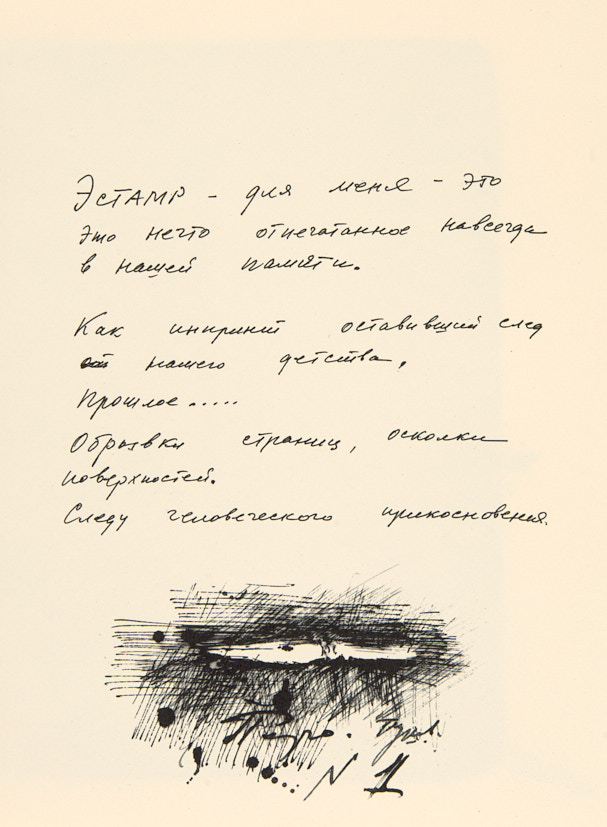 Эстамр - для меня - это
это нечто отпечатанное навсегда
в нашей памяти.
Как инпринт оставивший след
от нашего детства,
Прошлое.....
Обрывки страниц, осколки
поверхностей.
Следы человеческого прикосновения.
Перо.
N 1